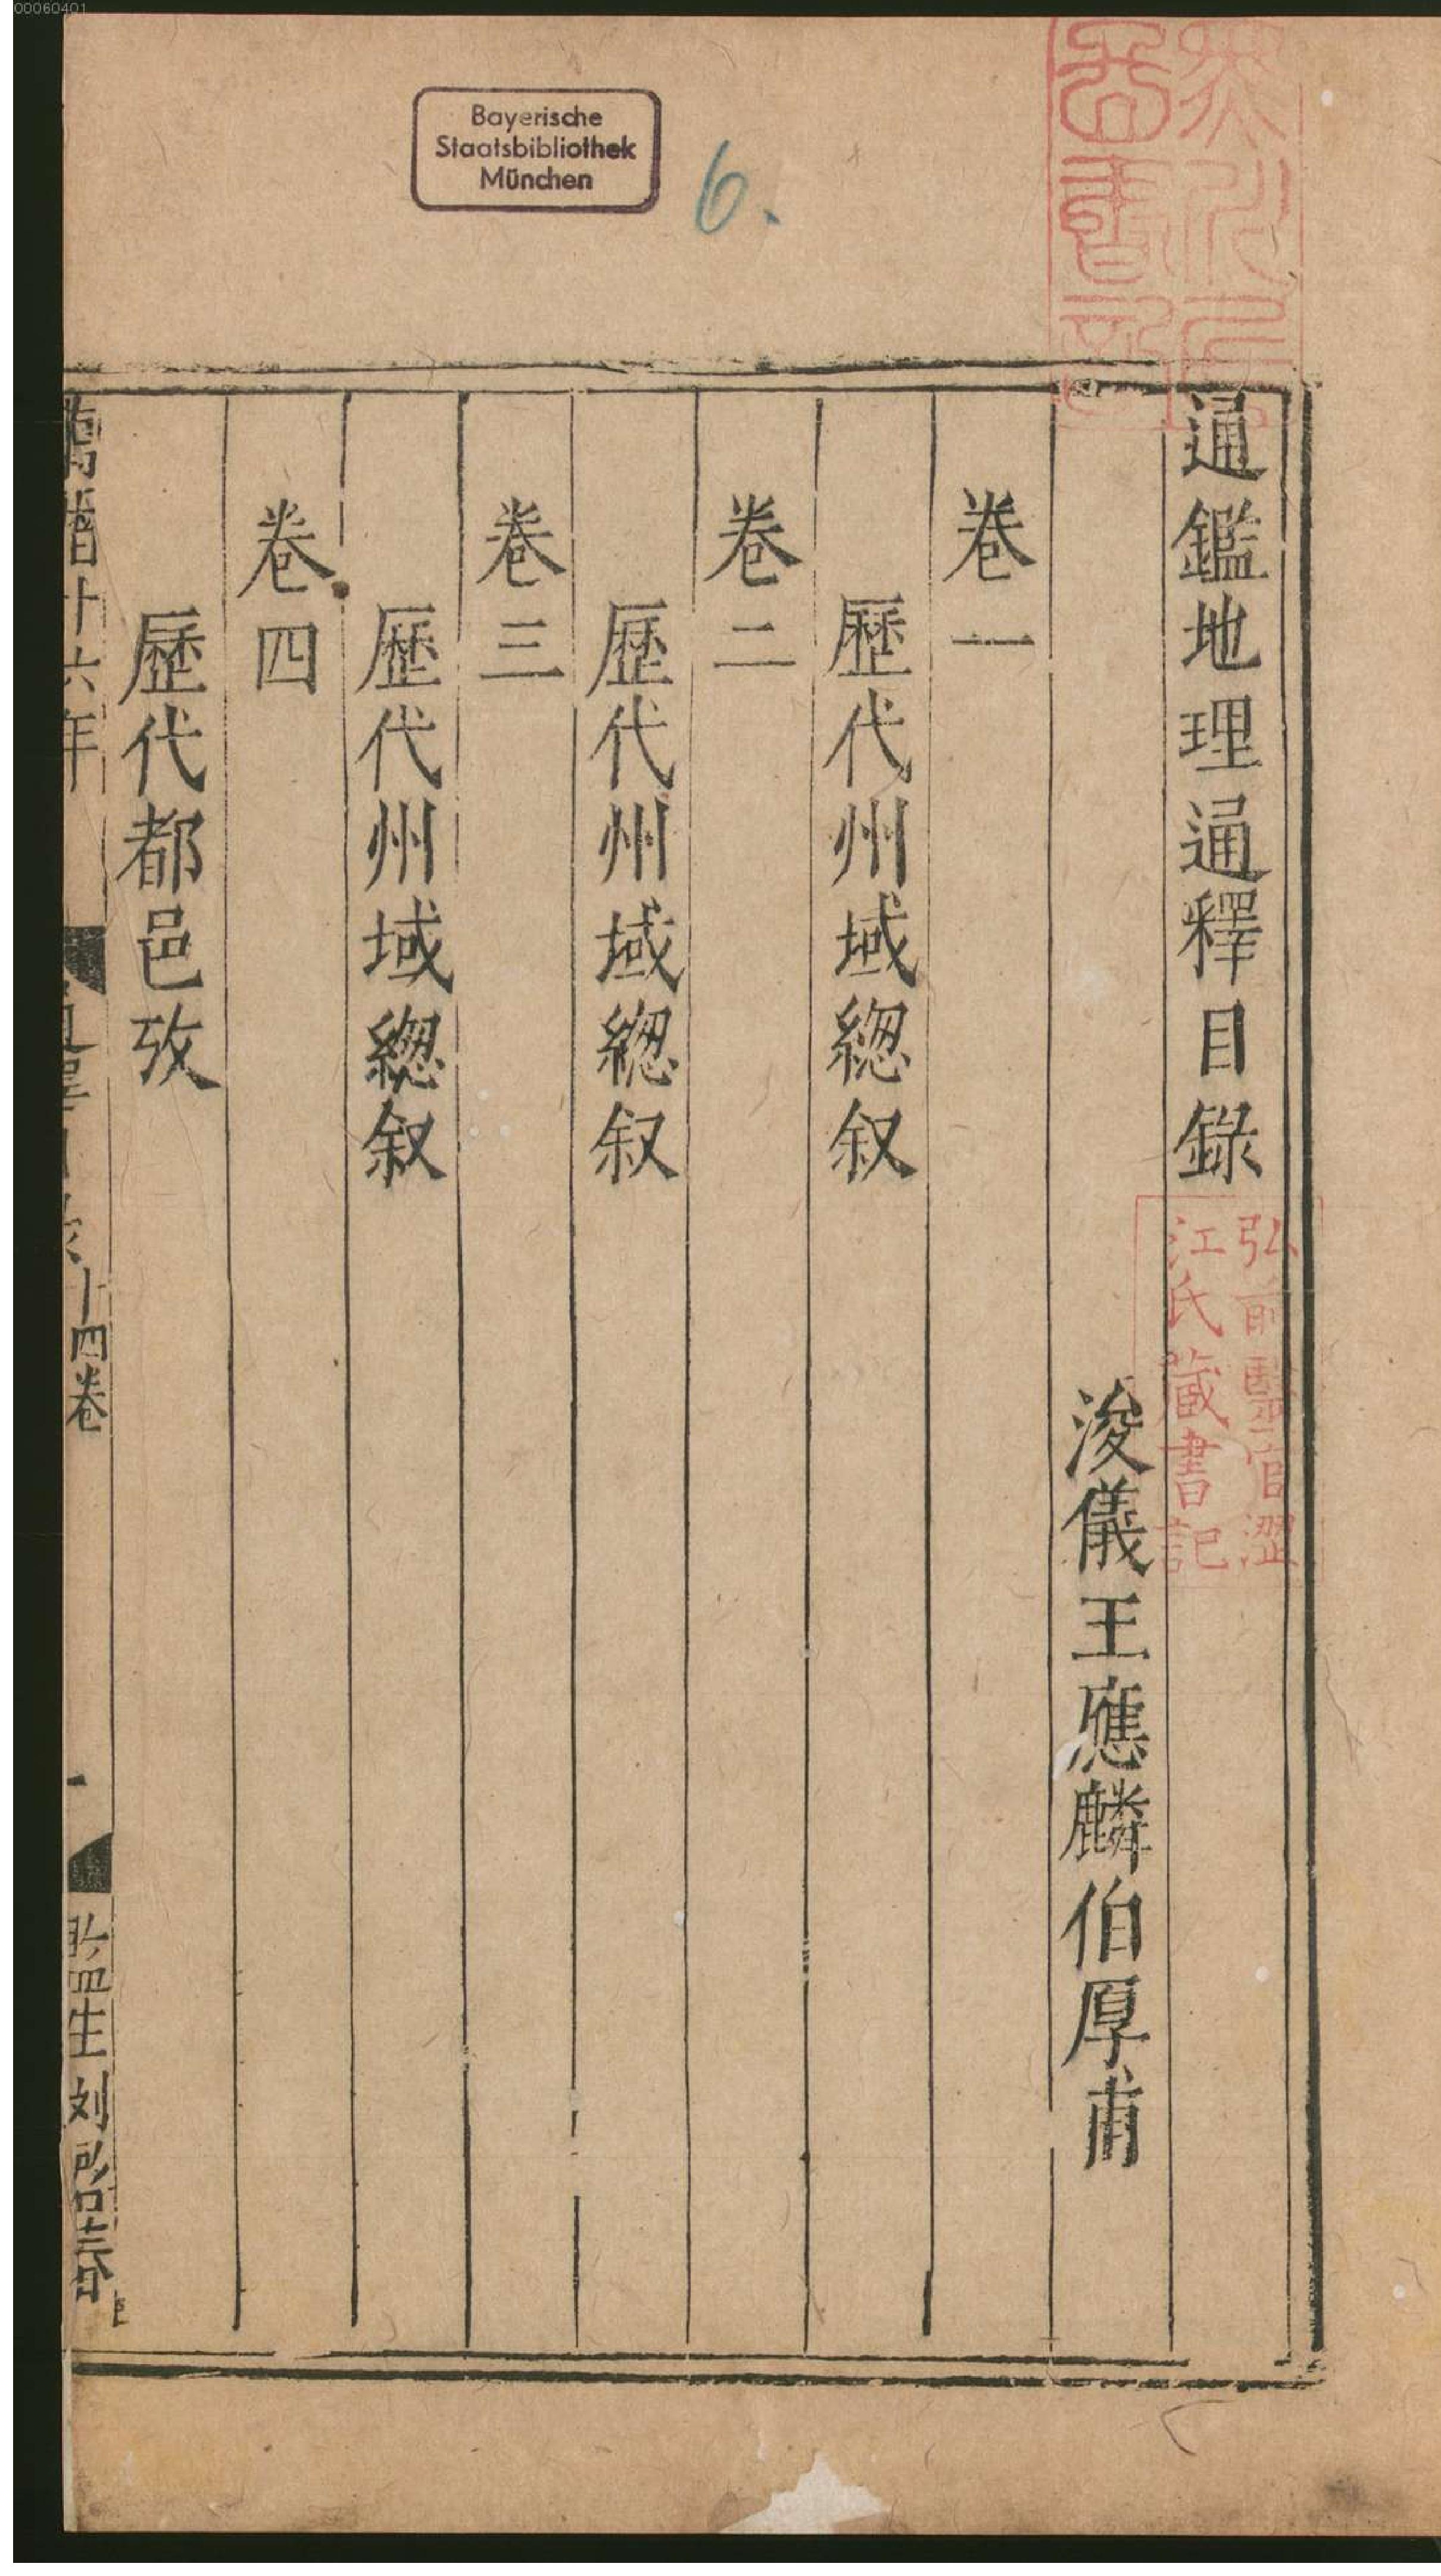 00060401
Bayerische
Staatsbibliothek
München
6.
通鑑地理通釋目錄
浚儀王應麟伯厚甫
卷一
歷代州域緫叙
卷二
歷代州域緫叙
卷三
歷代州域緫叙
卷四
歷代都邑攷
萬曆十六年
十四卷
一
監生刘弘春
弘前醫官澀
江氏藏書記